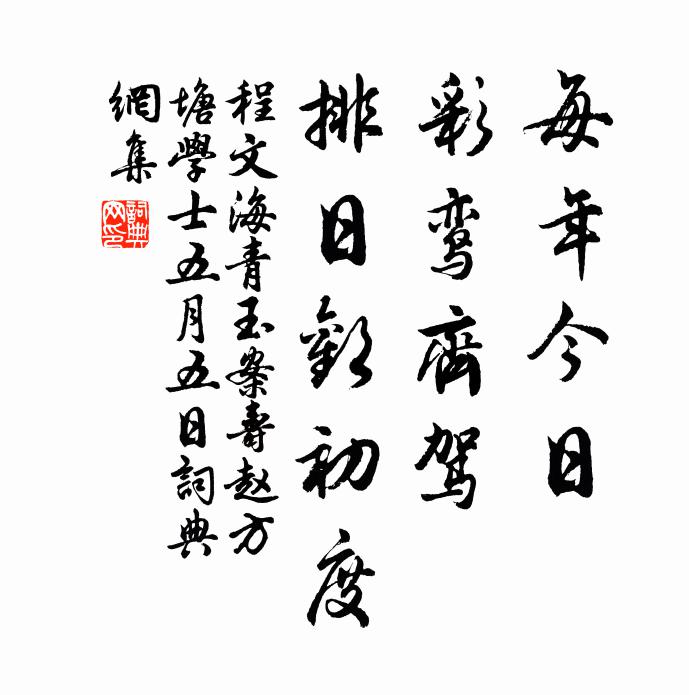 每年今日
彩鸾齊駕
排日歡初度
程文海青玉案壽赵方
塘學士五月五日詞典
網集
詞典
网印